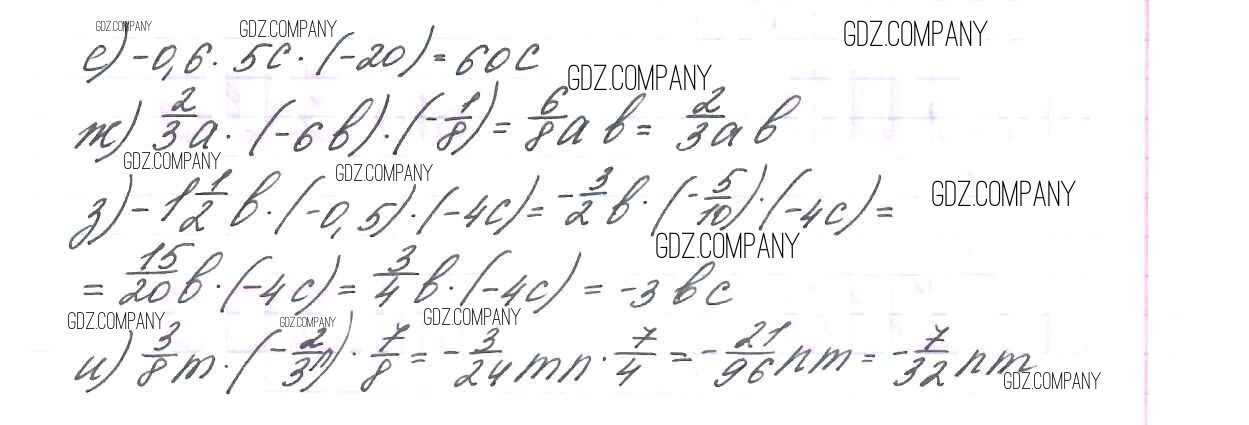 GDZ.COMPANY GDZ.COMPANY GDZ.COMPANY
е) -0,6 · 5c · (-20) = 60c
GDZ.COMPANY
ж) 2/3 a · (-6b) · (-1/8) = 6/8 a b = 2/3 a b
GDZ.COMPANY GDZ.COMPANY GDZ.COMPANY
з) -1 1/2 b · (-0,5) · (-4c) = -3/2 b · (-5/10) · (-4c) =
GDZ.COMPANY
= 15/20 b · (-4c) = 3/4 b · (-4c) = -3bc
GDZ.COMPANY GDZ.COMPANY GDZ.COMPANY
и) 3/8 m · (-2/3 n) · 7/8 = -3/24 mn · 7/4 = -21/96 nm = -7/32 nm
GDZ.COMPANY